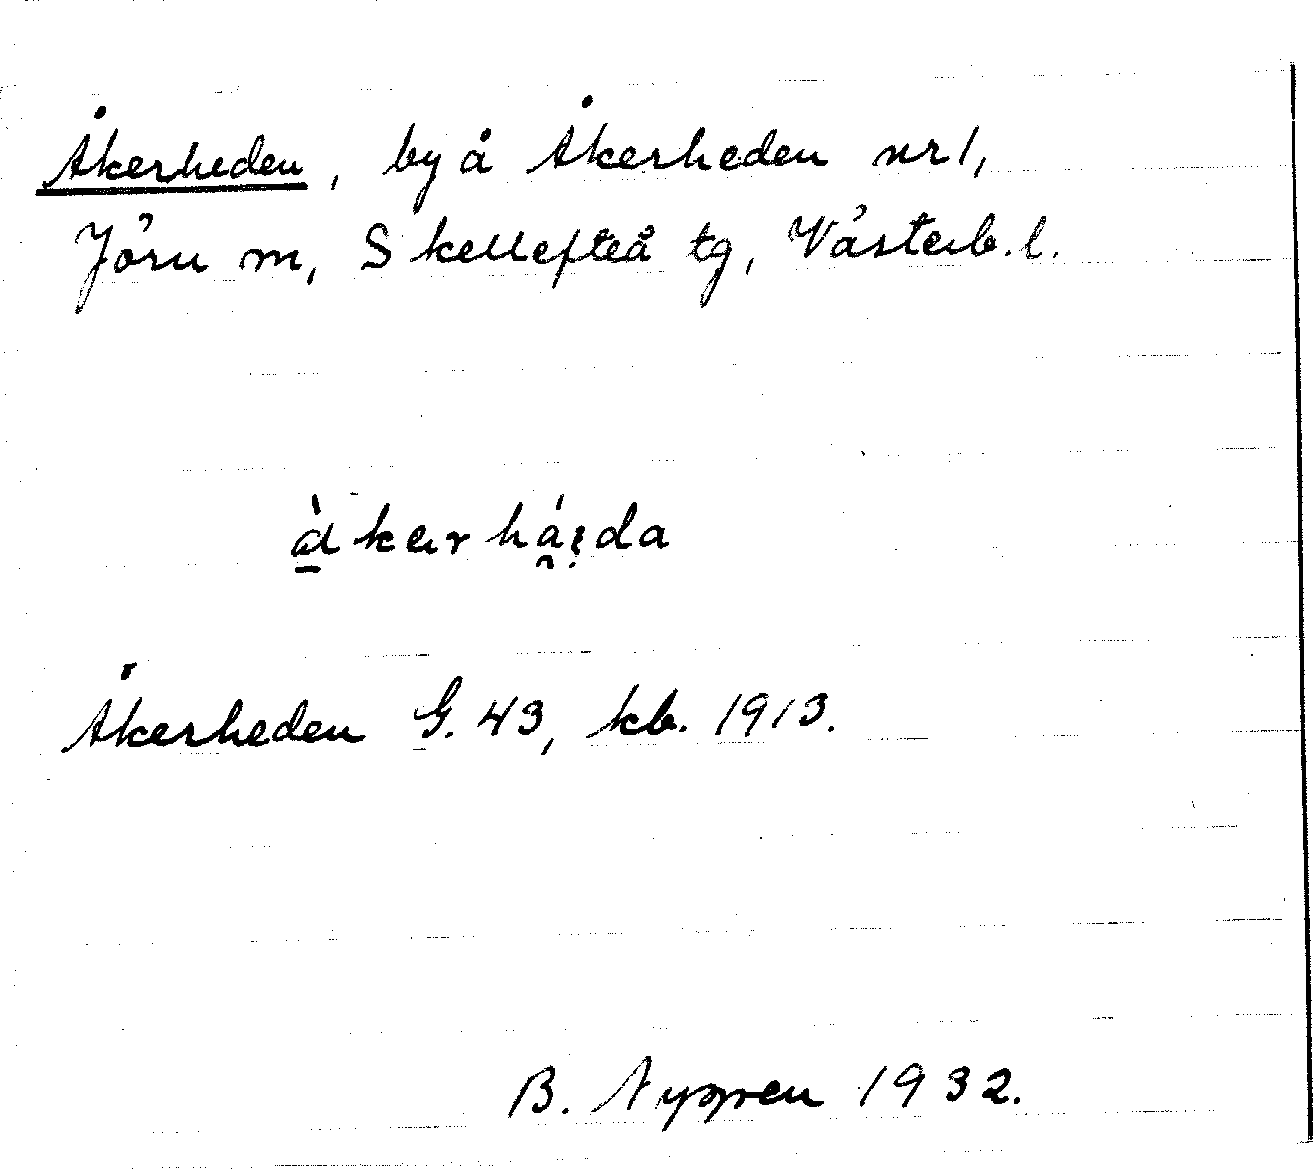 Åkerheden, by å Åkerheden nr 1,
Jörn m, Skellefteå tg, Västerb. l.
Åkerheden G. 43, kb. 1913.
B. Nygren 1932.